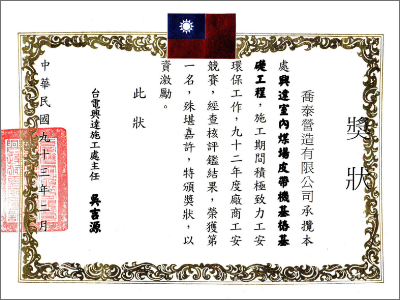 獎狀
喬泰營造有限公司承攬本
處興達室內煤場皮帶機基樁基
礎工程，施工期間積極致力工安
環保工作，九十二年度廠商工安
競賽，經查核評鑑結果，榮獲第
一名，殊堪嘉許，特頒獎狀，以
資激勵。
此狀
台電興達施工處主任 吳吉源
中華民國九十三年二月